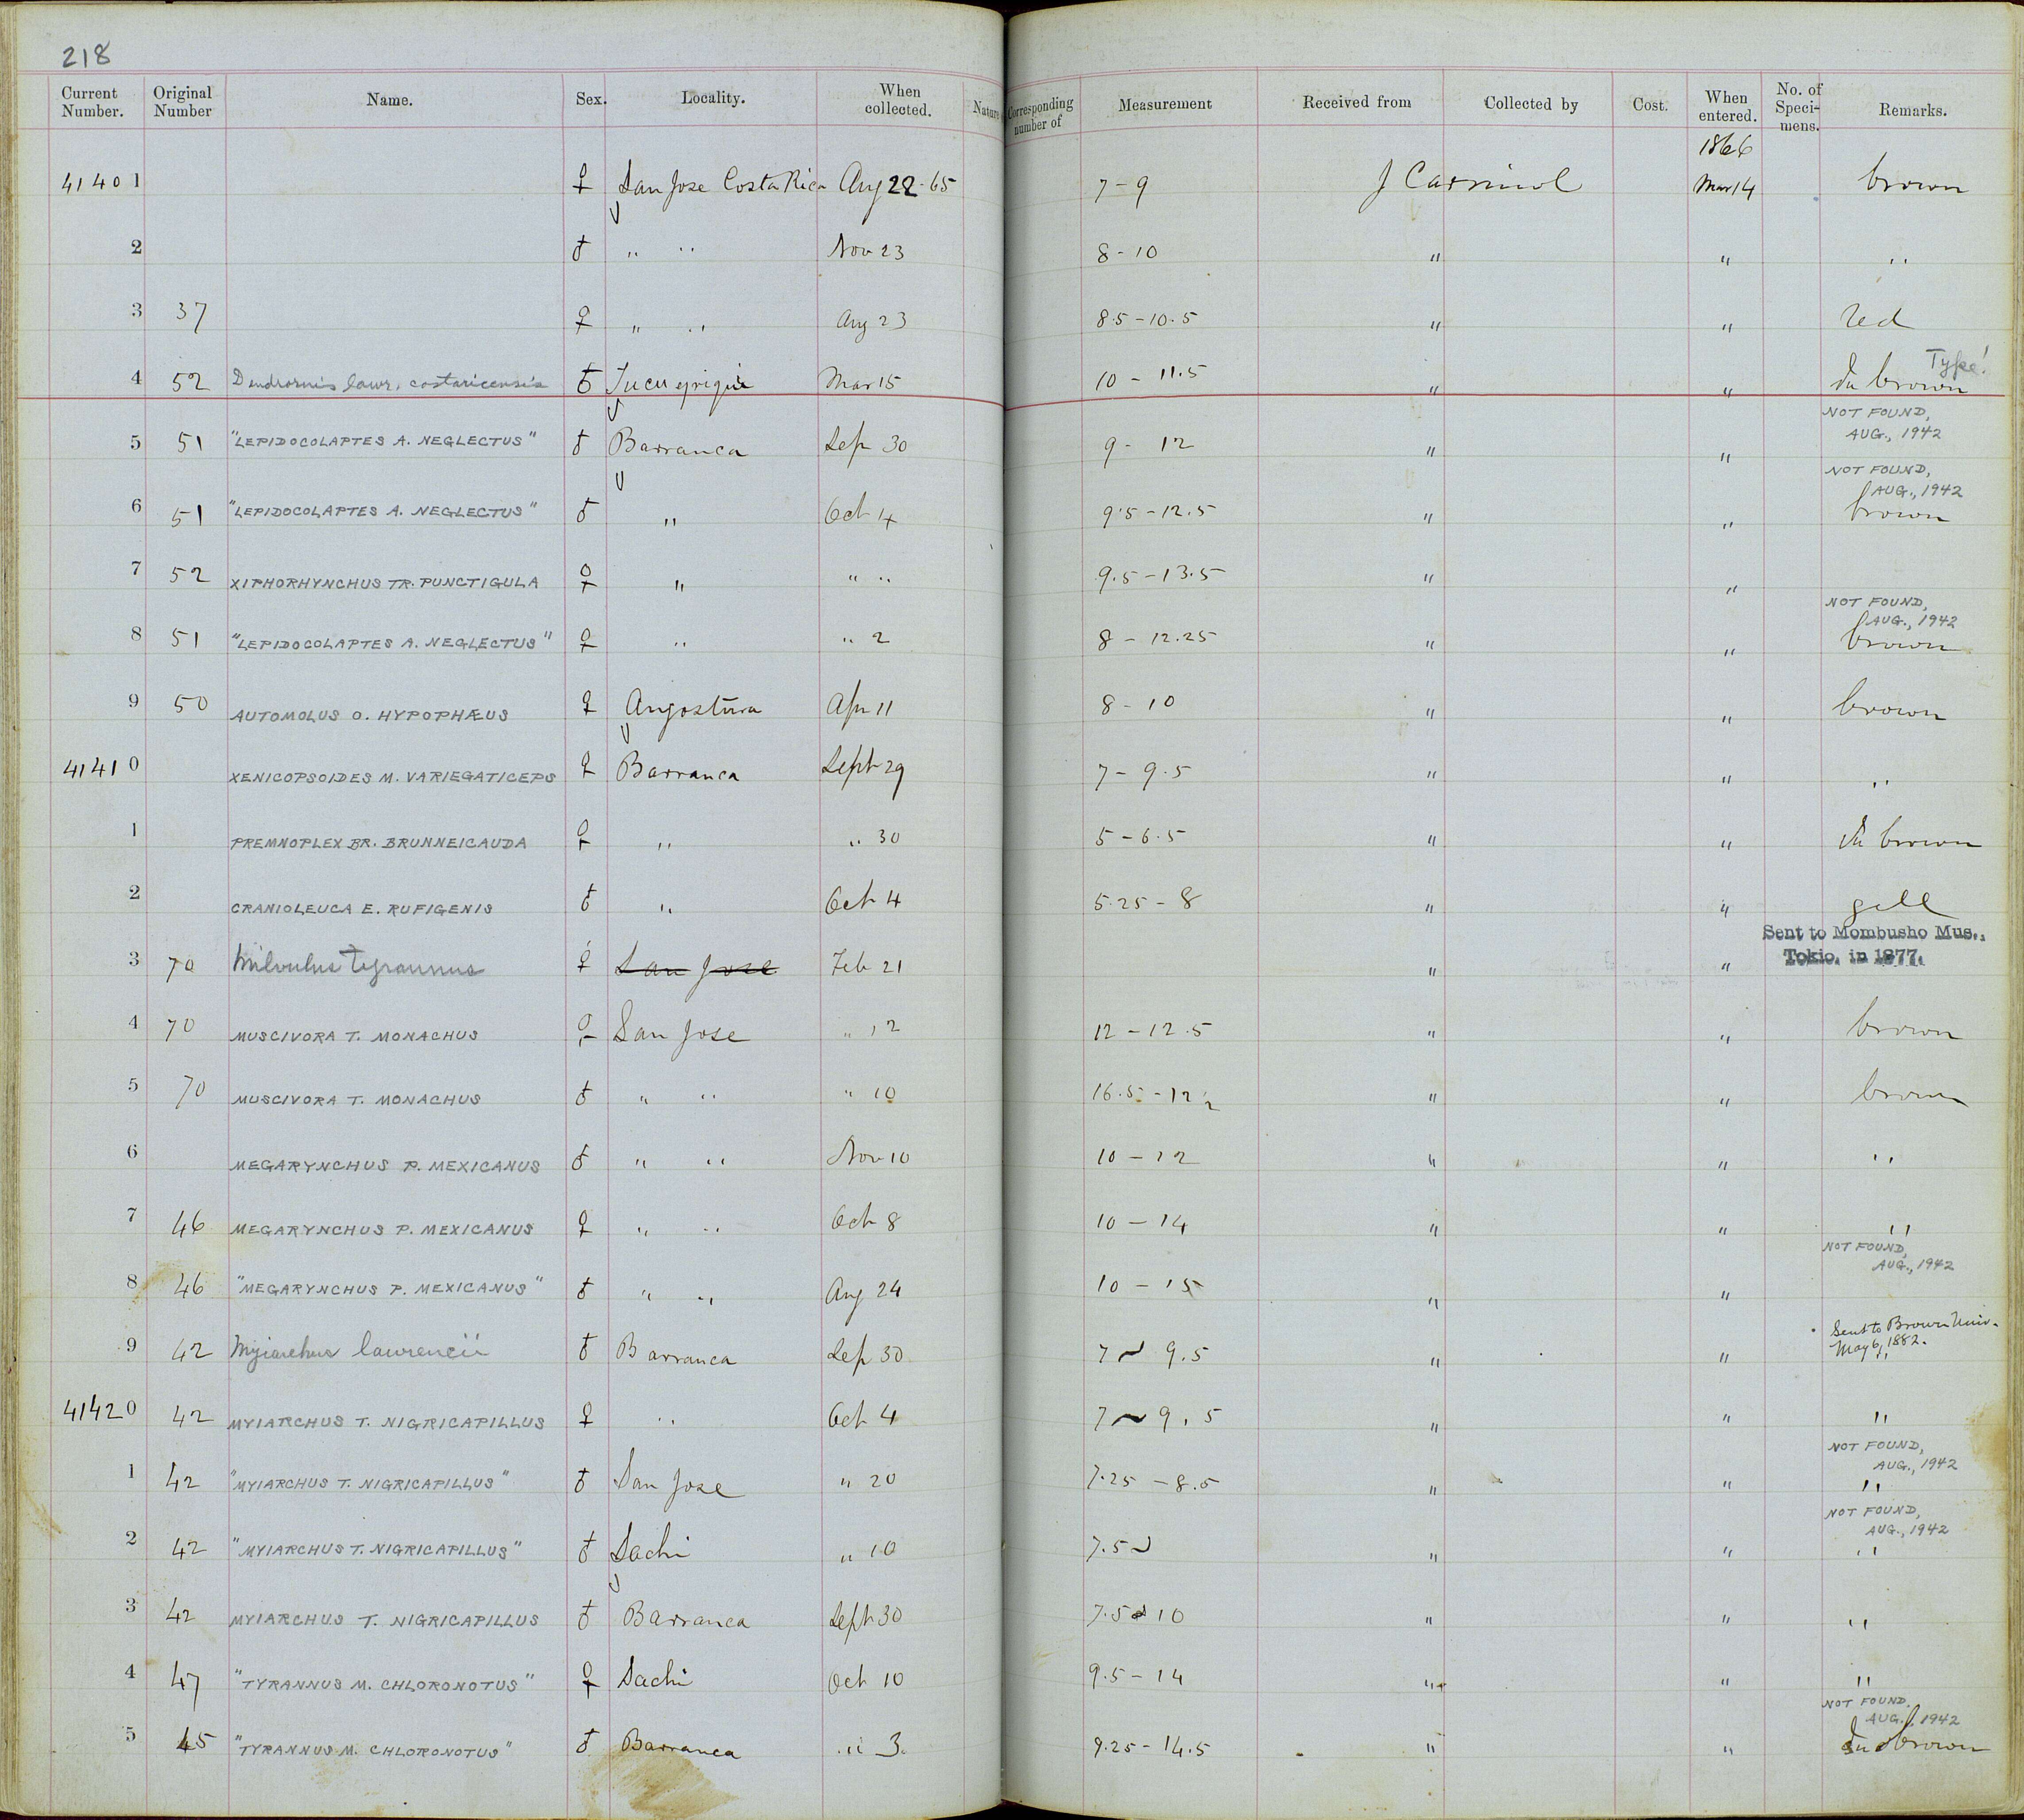 218
Current Number. Original Number Name. Sex. Locality. When collected. Nature Corresponding number of Measurement Received from Collected by Cost. When entered. No. of Speci-mens. Remarks.
1866
41401 ♀ San Jose Costa Rica Aug 22 · 65 7 - 9 J Carmiol Mar 14 brown
2 ♂ " " Nov 23 8 - 10 " " "
3 37 ♀ " " Aug 23 8.5 - 10.5 " " red
Type!
4 52 Dendrornis lawr. costaricensis ♂ Mar 15 10 - 11.5 " " brown
NOT FOUND, AUG., 1942
5 51 "LEPIDOCOLAPTES A. NEGLECTUS" ♂ Barranca Sep 30 9 - 12 " "
NOT FOUND, AUG., 1942
6 51 "LEPIDOCOLAPTES A. NEGLECTUS" ♂ " Oct 4 9.5 - 12.5 " " brown
7 52 XIPHORHYNCHUS TR. PUNCTIGULA ♀ " " " 9.5 - 13.5 " "
NOT FOUND, AUG., 1942
8 51 "LEPIDOCOLAPTES A. NEGLECTUS" ♀ " " 2 8 - 12.25 " " brown
9 50 AUTOMOLUS O. HYPOPHÆUS ♀ Angostura Apr 11 8 - 10 " " brown
41410 XENICOPSOIDES M. VARIEGATICEPS ♀ Barranca Sept 29 7 - 9.5 " " "
1 PREMNOPLEX BR. BRUNNEICAUDA ♀ " " 30 5 - 6.5 " " brown
2 CRANIOLEUCA E. RUFIGENIS ♂ " Oct 4 5.25 - 8 " "
Sent to Mombusho Mus., Tokio, in 1877.
3 70 Milvulus tyrannus ♀ San Jose Feb 21 " "
4 70 MUSCIVORA T. MONACHUS ♀ San Jose " 12 12 - 12.5 " " brown
5 70 MUSCIVORA T. MONACHUS ♂ " " " 10 16.5 - 12 " " brown
6 MEGARYNCHUS P. MEXICANUS ♂ " " Nov 10 10 - 12 " " "
7 46 MEGARYNCHUS P. MEXICANUS ♀ " " Oct 8 10 - 14 " " "
NOT FOUND, AUG., 1942
8 46 "MEGARYNCHUS P. MEXICANUS" ♂ " " Aug 24 10 - 15 " "
Sent to Brown Univ. May 6, 1882.
9 42 Myiarchus lawrencii ♂ Barranca Sep 30 7 ~ 9.5 " " "
41420 42 MYIARCHUS T. NIGRICAPILLUS ♀ " Oct 4 7 ~ 9.5 " " "
NOT FOUND, AUG., 1942
1 42 "MYIARCHUS T. NIGRICAPILLUS" ♂ San Jose " 20 7.25 - 8.5 " " "
NOT FOUND, AUG., 1942
2 42 "MYIARCHUS T. NIGRICAPILLUS" ♂ " 10 7.5 ~ " " "
3 42 MYIARCHUS T. NIGRICAPILLUS ♂ Barranca Sept 30 7.5 ~ 10 " " "
4 47 "TYRANNUS M. CHLORONOTUS" ♀ Oct 10 9.5 - 14 " " "
NOT FOUND, AUG., 1942
5 45 "TYRANNUS M. CHLORONOTUS" ♂ Barranca " 3 9.25 - 14.5 " " brown